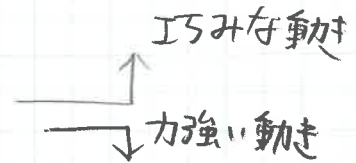 巧みな動き
力強い動き